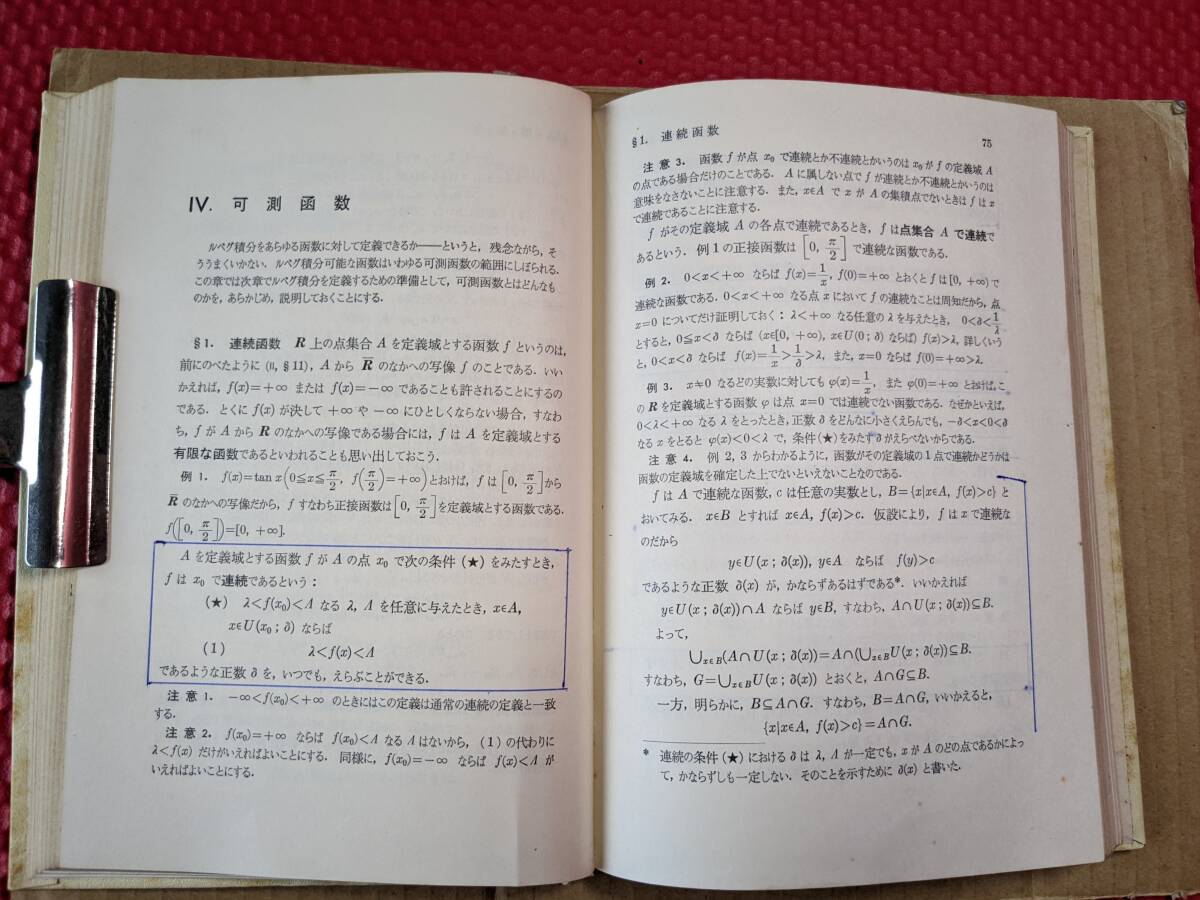 IV. 可測函数
ルベグ積分をあらゆる函数に対して定義できるか——というと，残念ながら，そ
ううまくいかない．ルベグ積分可能な函数はいわゆる可測函数の範囲にしぼられる．
この章では次章でルベグ積分を定義するための準備として，可測函数とはどんなも
のかを，あらかじめ，説明しておくことにする．
§1. 連続函数 R 上の点集合 A を定義域とする函数 f というのは，
前にのべたように (II, §11)，A から R̅ のなかへの写像 f のことである．いい
かえれば，f(x)=+∞ または f(x)=−∞ であることも許されることにするの
である．とくに f(x) が決して +∞ や −∞ にひとしくならない場合，すなわ
ち，f が A から R のなかへの写像である場合には，f は A を定義域とする
有限な函数であるといわれることも思い出しておこう．
例 1. f(x)=tan x(0≦x≦π/2, f(π/2)=+∞) とおけば，f は [0, π/2] から
R̅ のなかへの写像だから，f すなわち正接函数は [0, π/2] を定義域とする函数である．
f([0, π/2])=[0, +∞].
A を定義域とする函数 f が A の点 x₀ で次の条件 (★) をみたすとき，
f は x₀ で連続であるという：
(★) λ<f(x₀)<Λ なる λ, Λ を任意に与えたとき，x∈A,
x∈U(x₀ ; ∂) ならば
(1) λ<f(x)<Λ
であるような正数 ∂ を，いつでも，えらぶことができる．
注意 1. −∞<f(x₀)<+∞ のときにはこの定義は通常の連続の定義と一致
する．
注意 2. f(x₀)=+∞ ならば f(x₀)<Λ なる Λ はないから，(1) の代わりに
λ<f(x) だけがいえればよいことにする．同様に，f(x₀)=−∞ ならば f(x)<Λ が
いえればよいことにする．
§1. 連続函数 75
注意 3. 函数 f が点 x₀ で連続とか不連続とかいうのは x₀ が f の定義域 A
の点である場合だけのことである．A に属しない点で f が連続とか不連続とかいうのは
意味をなさないことに注意する．また，x∈A で x が A の集積点でないときは f は x
で連続であることに注意する．
f がその定義域 A の各点で連続であるとき，f は点集合 A で連続で
あるという．例 1 の正接函数は [0, π/2] で連続な函数である．
例 2. 0<x<+∞ ならば f(x)=1/x, f(0)=+∞ とおくと f は [0, +∞) で
連続な函数である．0<x<+∞ なる点 x において f の連続なことは周知だから，点
x=0 についてだけ証明しておく：λ<+∞ なる任意の λ を与えたとき，0<∂<1/λ
とすると，0≦x<∂ ならば (x∈[0, +∞), x∈U(0; ∂) ならば) f(x)>λ. 詳しくいう
と，0<x<∂ ならば f(x)=1/x>1/∂>λ, また，x=0 ならば f(0)=+∞>λ.
例 3. x≠0 なるどの実数に対しても φ(x)=1/x, また φ(0)=+∞ とおけば，こ
の R を定義域とする函数 φ は点 x=0 では連続でない函数である．なぜかといえば，
0<λ<+∞ なる λ をとったとき，正数 ∂ をどんなに小さくえらんでも，−∂<x<0
なる x をとると φ(x)<0<λ で，条件(★)をみたす ∂ がえらべないからである．
注意 4. 例 2, 3 からわかるように，函数がその定義域の 1 点で連続かどうかは
函数の定義域を確定した上でないといえないことなのである．
f は A で連続な函数，c は任意の実数とし，B={x|x∈A, f(x)>c} と
おいてみる．x∈B とすれば x∈A, f(x)>c. 仮設により，f は x で連続な
のだから
y∈U(x ; ∂(x)), y∈A ならば f(y)>c
であるような正数 ∂(x) が，かならずあるはずである*．いいかえれば
y∈U(x ; ∂(x))∩A ならば y∈B, すなわち，A∩U(x ; ∂(x))⊆B.
よって，
∪x∈B(A∩U(x ; ∂(x))=A∩(∪x∈BU(x ; ∂(x))⊆B.
すなわち，G=∪x∈BU(x ; ∂(x)) とおくと，A∩G⊆B.
一方，明らかに，B⊆A∩G. すなわち，B=A∩G, いいかえると，
{x|x∈A, f(x)>c}=A∩G.
* 連続の条件 (★) における ∂ は λ, Λ が一定でも，x が A のどの点であるかによっ
て，かならずしも一定しない．そのことを示すために ∂(x) と書いた．